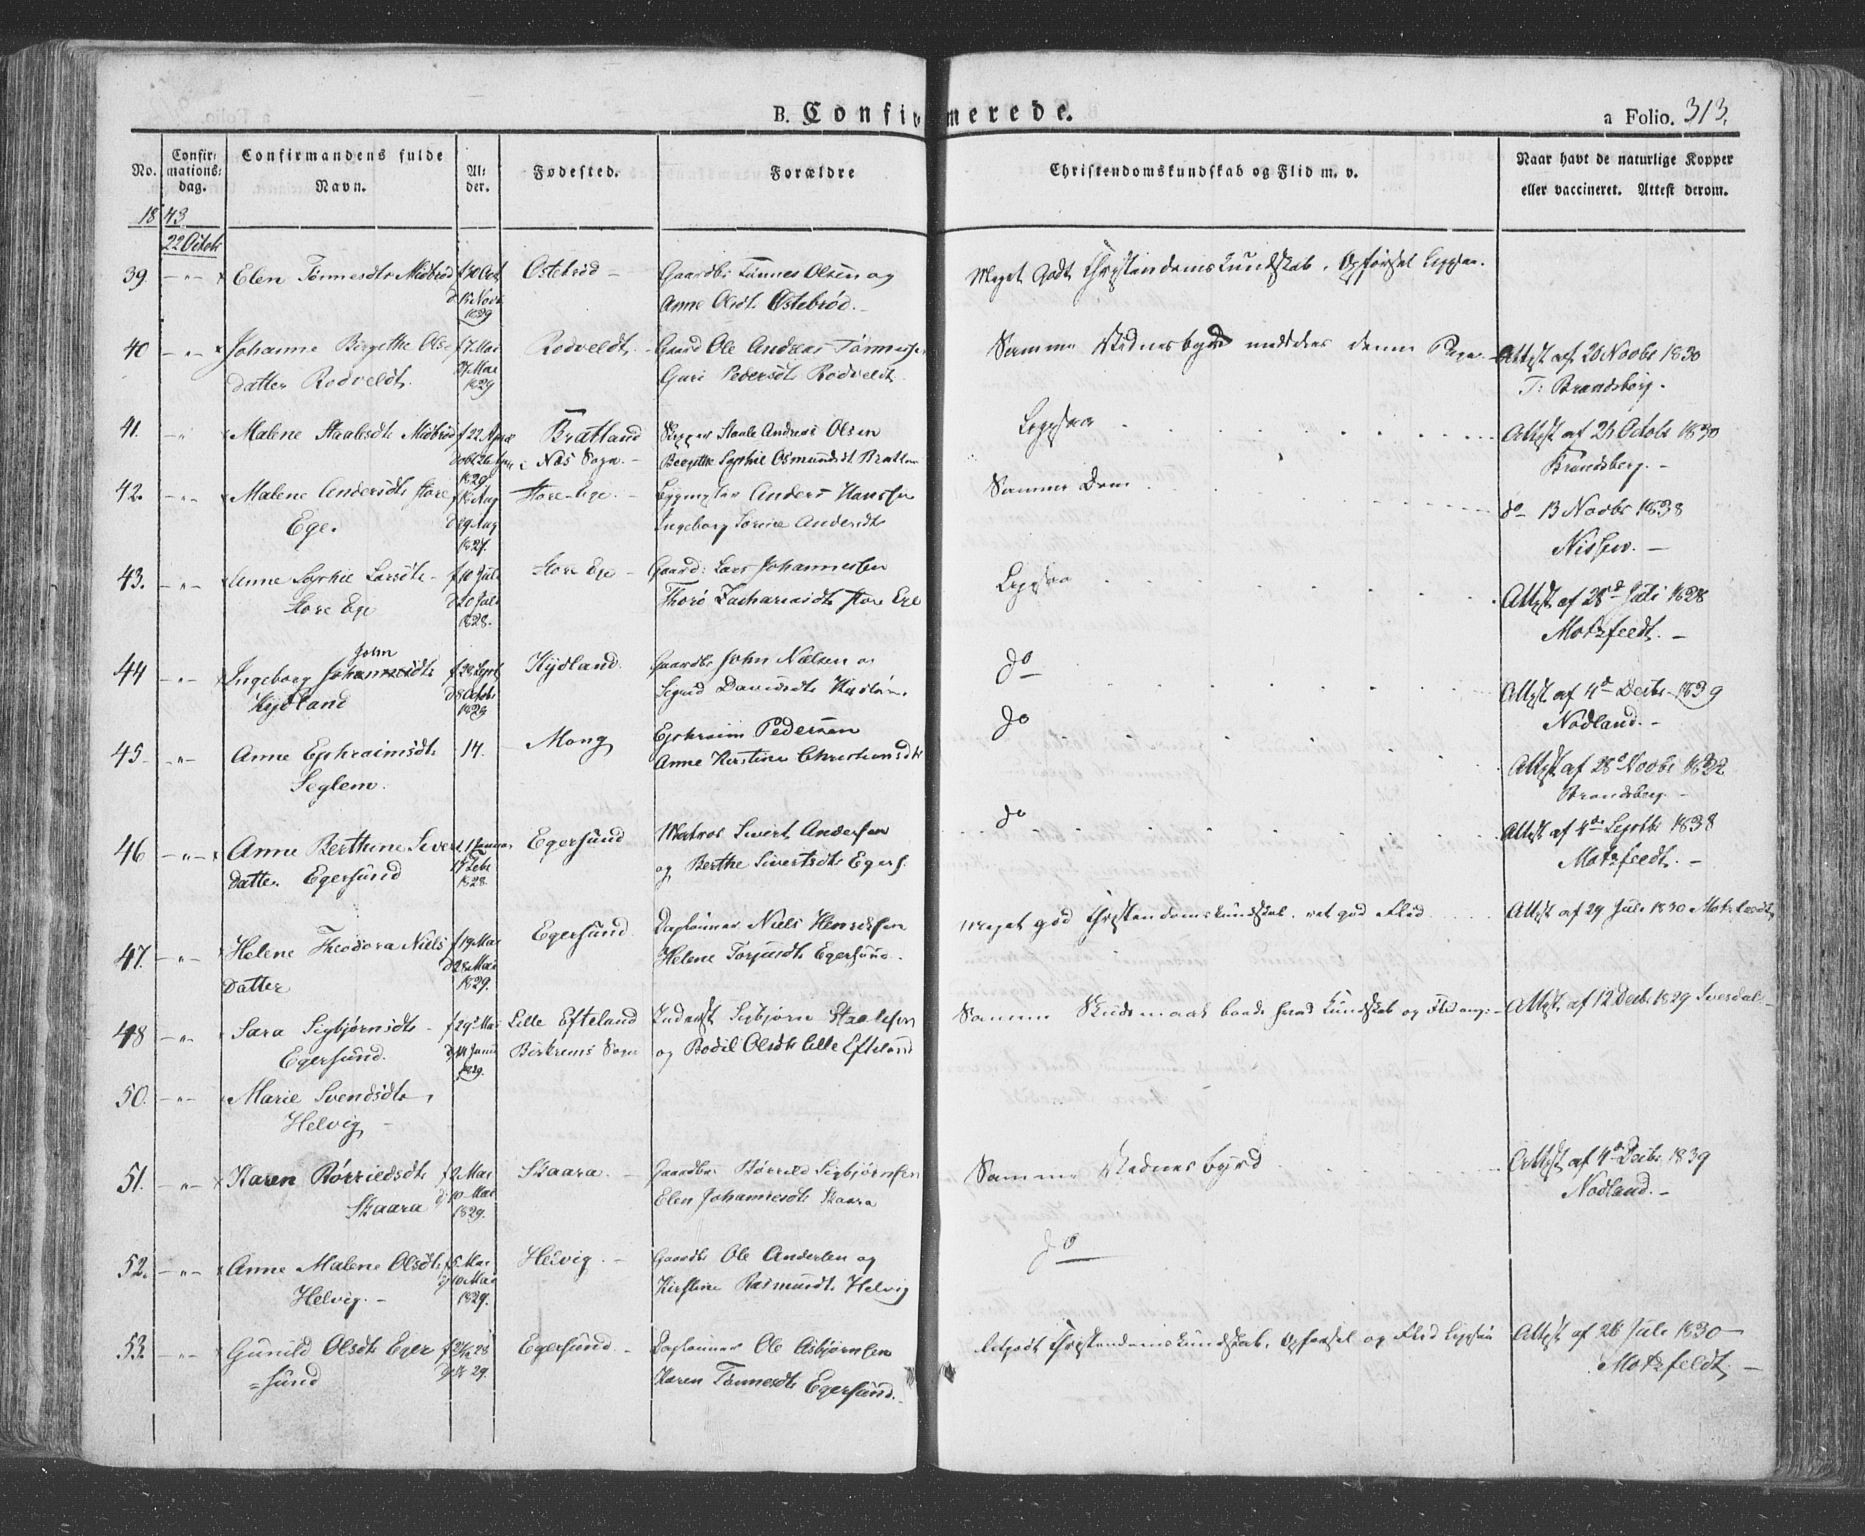 B. Confirmerede.
a Folio. 313.
No.
Confir-
mations-
dag.
Confirmandens fulde
Navn.
Al-
der.
Fødested.
Forældre
Christendomskundskab og Flid m. v.
Naar havt de naturlige Kopper
eller vaccineret. Attest derom.
1843
22 Octobr
39. Elen Tönnesdtr Midbröd
f 30 Oct
d 15 Novb
1829
Ostebröd
Gaardbr Tönnes Olsen og
Anne Olsdt. Østebrød.
Meget Godt Christendomskundskab, Opførsel ligesaa.
40 Johanne Birgithe Ols
datter Rodveldt.
f 7 Mai
Mai
1829
Rodveldt
Gaard Ole Andreas Tönnesen
Guri Pedersdt Rodveldt
Samme Vidnesbyrd meddeles denne Pige
Attest af 20 Novbr 1830
T: Brandsberg.
41. Malene Staalesdt Midbröd
f 22 April
1829
Bratland
i Næs Sogn.
Skipper Staale Andreas Olsen
Birgithe Sophie Osmundsdt Bratland
Ligesaa
Attest af 24 Octobr 1830
Brandsberg.
42. Malene Andersdt Store
Ege.
f 18 Aug
d 29 Aug
1827.
Store-Ege.
Anders Hansen
Ingeborg Serine Andersdt
Samme Dom
do 13 Novbr 1838
Nissen.
43. Anne Sophie Larsdtr
Store Ege
f 10 Juli
d 20 Juli
1828.
Store Ege
Gaard: Lars Johannessen
Thore Zachariasdt Store Ege
Ligesaa
Attest af 28d Juli 1828
Motzfeldt.
John
44 Ingeborg Johannesdtr
Kydland
f 30 Sept
d 8 Octobr
1829
Kydland.
Gaardbr John Nielsen og
Sigrid Davidsdt
do
Attest af 4d Decbr 1839
Nodland.
45. Anne Ephraimsdt
Seglem.
14.
Mong
Ephraim Pedersen
Anne Kirstine Christiensdt
do
Attest af 28d Novbr 1832
Brandsberg
46 Anne Berthine Severs
datter Egersund
1 Januar
17 Febr
1828.
Egersund
Matros Sivert Andersen
og Berthe Sivertsdt Egers.
do
Attest af 4de Septbr 1838
Motzfeldt.
47. Helene Theodora Niels
datter
f 19 Mai
d 28 Mai
1829.
Egersund.
Dagleiner Niels
Helene Torjusdt Egersund.
Meget god Christendomskundskab. ret god Flid
Attest af 29 Juli 1830 Motzfeldt
48 Sara Sigbjørnsdt
Egersund.
f 29 Mai
d 14 Juni
1829.
Lille Efteland
Birkrems Sogn
Inderst Sigbjørn Staalesen
og Bodil Olsdt Lille Efteland
Samme Skudsmaal baade hvad Kundskab og Flid ang:
Attest af 12 Decbr 1829 Svesdal
50. Marie Svendsdtr
Helvig
51. Karen Børrildsdt
Skaara
f 2 Mai
d 10 Mai
1829.
Skaara.
Gaardbr Børrild Sigbjørnsen
Elen Johannesdt Skaara
Samme Vidnesbyrd
Attest af 4d Decbr 1839
Nodland.
52. Anne Malene Olsdt
Helvig.
f 5 Mai
d 10 Mai
1829.
Helvig.
Gaardbr Ole Andersen og
Kirstine Rasmusdt Helvig
do
53. Gunild Olsdt Eger
=sund
28
29.
Egersund.
Dagleiner Ole Asbjørnsen
Karen Tönnesdt Egersund.
Retgodt Christendomskundskab, Opførsel og Flid ligesaa
Attest af 26 Juli 1830
Motzfeldt.